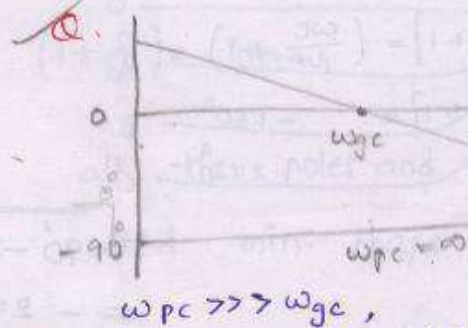 Q.
0
ωgc
-90°
ωpc = ∞
ωpc >>> ωgc,